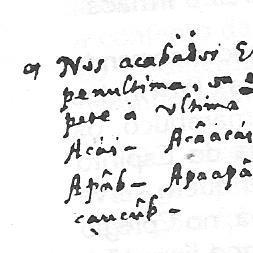 q Nos acabádos E
penultima, su
pete a vltima
Acái - Acâacái
Apâb - Apaapâ
çaucúb -